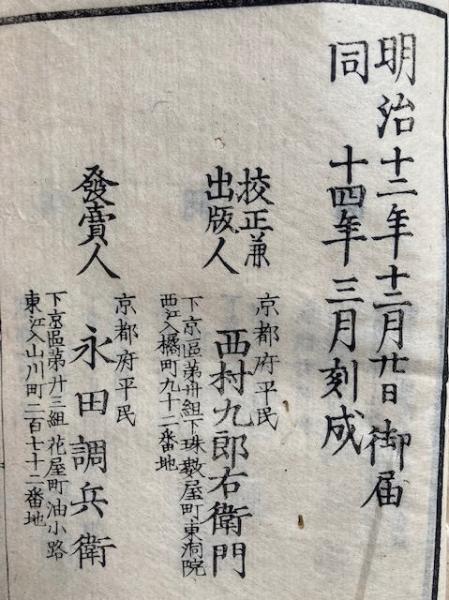 明治十二年十二月廿日御届
同　十四年三月刻成
校正兼
出版人
京都府平民
西村九郎右衛門
下京區第卅組下珠數屋町東洞院
西江入橘町九十二番地
發賣人
京都府平民
永田調兵衛
下京區第廿三組花屋町油小路
東江入山川町二百七十二番地